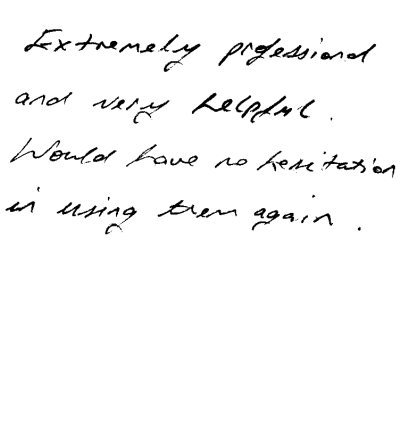 Extremely professional
and very helpful.
Would have no hesitation
in using them again.